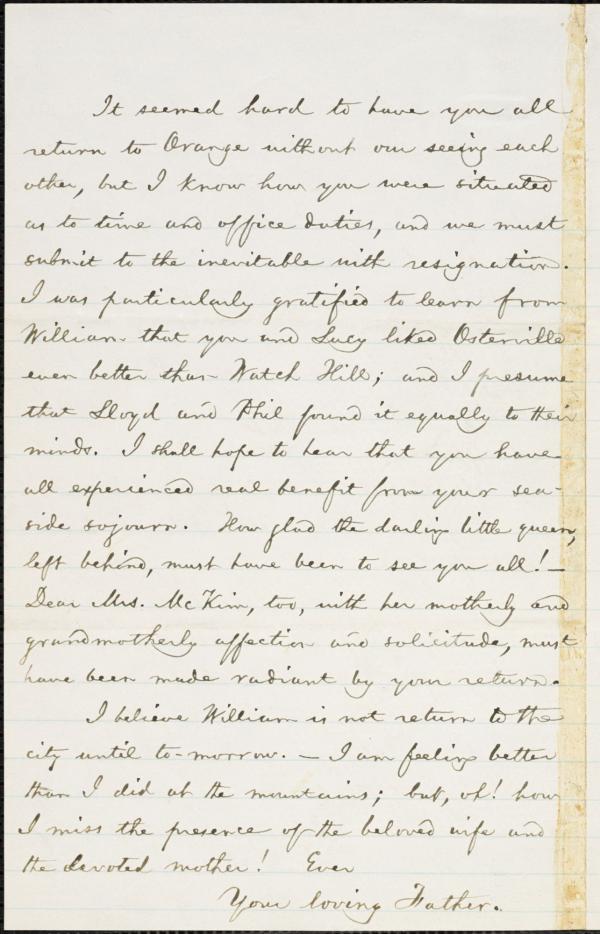 It seemed hard to have you all
return to Orange without our seeing each
other, but I know how you were situated
as to time and office duties, and we must
submit to the inevitable with resignation.
I was particularly gratified to learn from
William that you and Lucy liked Osterville
even better than Watch Hill; and I presume
that Lloyd and Phil found it equally to their
minds. I shall hope to hear that you have
all experienced real benefit from your sea-
side sojourn. How glad the darling little queen,
left behind, must have been to see you all! —
Dear Mrs. McKim, too, with her motherly and
grandmotherly affection and solicitude, must
have been made radiant by your return.
I believe William is not return to the
city until to-morrow. — I am feeling better
than I did at the mountains; but, oh! how
I miss the presence of the beloved wife and
the devoted mother! Ever
Your loving Father.